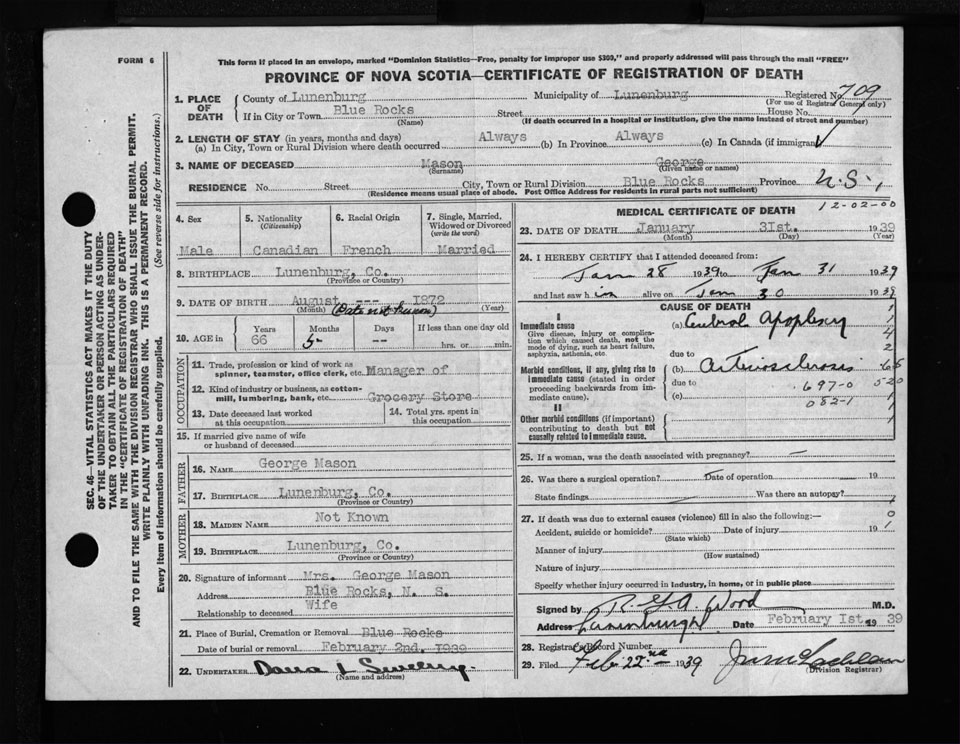 FORM 6
This form if placed in an envelope, marked "Dominion Statistics—Free, penalty for improper use $300," and properly addressed will pass through the mail "FREE"
PROVINCE OF NOVA SCOTIA—CERTIFICATE OF REGISTRATION OF DEATH
1. PLACE OF DEATH
County of Lunenburg Municipality of Lunenburg Registered No. 709
(For use of Registrar General only)
If in City or Town Blue Rocks Street House No.
(Name) (If death occurred in a hospital or institution, give the name instead of street and number)
2. LENGTH OF STAY (in years, months and days)
(a) In City, Town or Rural Division where death occurred Always (b) In Province Always (c) In Canada (if immigrant)
3. NAME OF DECEASED Mason George
(Surname) (Given name or names)
RESIDENCE No. Street City, Town or Rural Division Blue Rocks Province N.S.,
(Residence means usual place of abode. Post Office Address for residents in rural parts not sufficient)
4. Sex
Male
5. Nationality
(Citizenship)
Canadian
6. Racial Origin
French
7. Single, Married, Widowed or Divorced
(write the word)
Married
8. BIRTHPLACE Lunenburg, Co.
(Province or Country)
9. DATE OF BIRTH August --- 1872
(Month) (Date not known) (Year)
10. AGE in
Years Months Days If less than one day old
66 5 -- hrs. or min.
OCCUPATION
11. Trade, profession or kind of work as
spinner, teamster, office clerk, etc. Manager of
12. Kind of industry or business, as cotton-
mill, lumbering, bank, etc. Grocery Store
13. Date deceased last worked
at this occupation
14. Total yrs. spent in
this occupation
15. If married give name of wife
or husband of deceased
FATHER
16. NAME George Mason
17. BIRTHPLACE Lunenburg, Co.
(Province or Country)
MOTHER
18. MAIDEN NAME Not Known
19. BIRTHPLACE Lunenburg, Co.
(Province or Country)
20. Signature of informant Mrs. George Mason
Address Blue Rocks, N. S.
Relationship to deceased Wife
21. Place of Burial, Cremation or Removal Blue Rocks
Date of burial or removal February 2nd, 1939
22. UNDERTAKER
(Name and address)
MEDICAL CERTIFICATE OF DEATH 12-02-00
23. DATE OF DEATH January 31st. 1939
(Month) (Day) (Year)
24. I HEREBY CERTIFY that I attended deceased from:
Jan 28 1939 to Jan 31 1939
and last saw him alive on Jan 30 1939
CAUSE OF DEATH
I
Immediate cause
Give disease, injury or complication which caused death, not the mode of dying, such as heart failure, asphyxia, asthenia, etc.
(a) Cerebral Apoplexy
due to
Morbid conditions, if any, giving rise to immediate cause (stated in order proceeding backwards from immediate cause).
(b) Arteriosclerosis
due to 697-0
(c) 082-1
II
Other morbid conditions (if important) contributing to death but not causally related to immediate cause.
25. If a woman, was the death associated with pregnancy? —
26. Was there a surgical operation? — Date of operation 19
State findings Was there an autopsy?
27. If death was due to external causes (violence) fill in also the following:—
Accident, suicide or homicide? Date of injury 19
(State which)
Manner of injury
(How sustained)
Nature of injury
Specify whether injury occurred in industry, in home, or in public place
Signed by R.G.A. Wood M.D.
Address Lunenburg Date February 1st. 1939
28. Registrar's Record Number
29. Filed Feb 22nd 1939
(Division Registrar)
SEC. 46—VITAL STATISTICS ACT MAKES IT THE DUTY
OF THE UNDERTAKER OR PERSON ACTING AS UNDER-
TAKER TO OBTAIN ALL THE PARTICULARS REQUIRED
IN THE "CERTIFICATE OF REGISTRATION OF DEATH"
AND TO FILE THE SAME WITH THE DIVISION REGISTRAR WHO SHALL ISSUE THE BURIAL PERMIT.
WRITE PLAINLY WITH UNFADING INK. THIS IS A PERMANENT RECORD.
Every item of information should be carefully supplied. (See reverse side for instructions.)